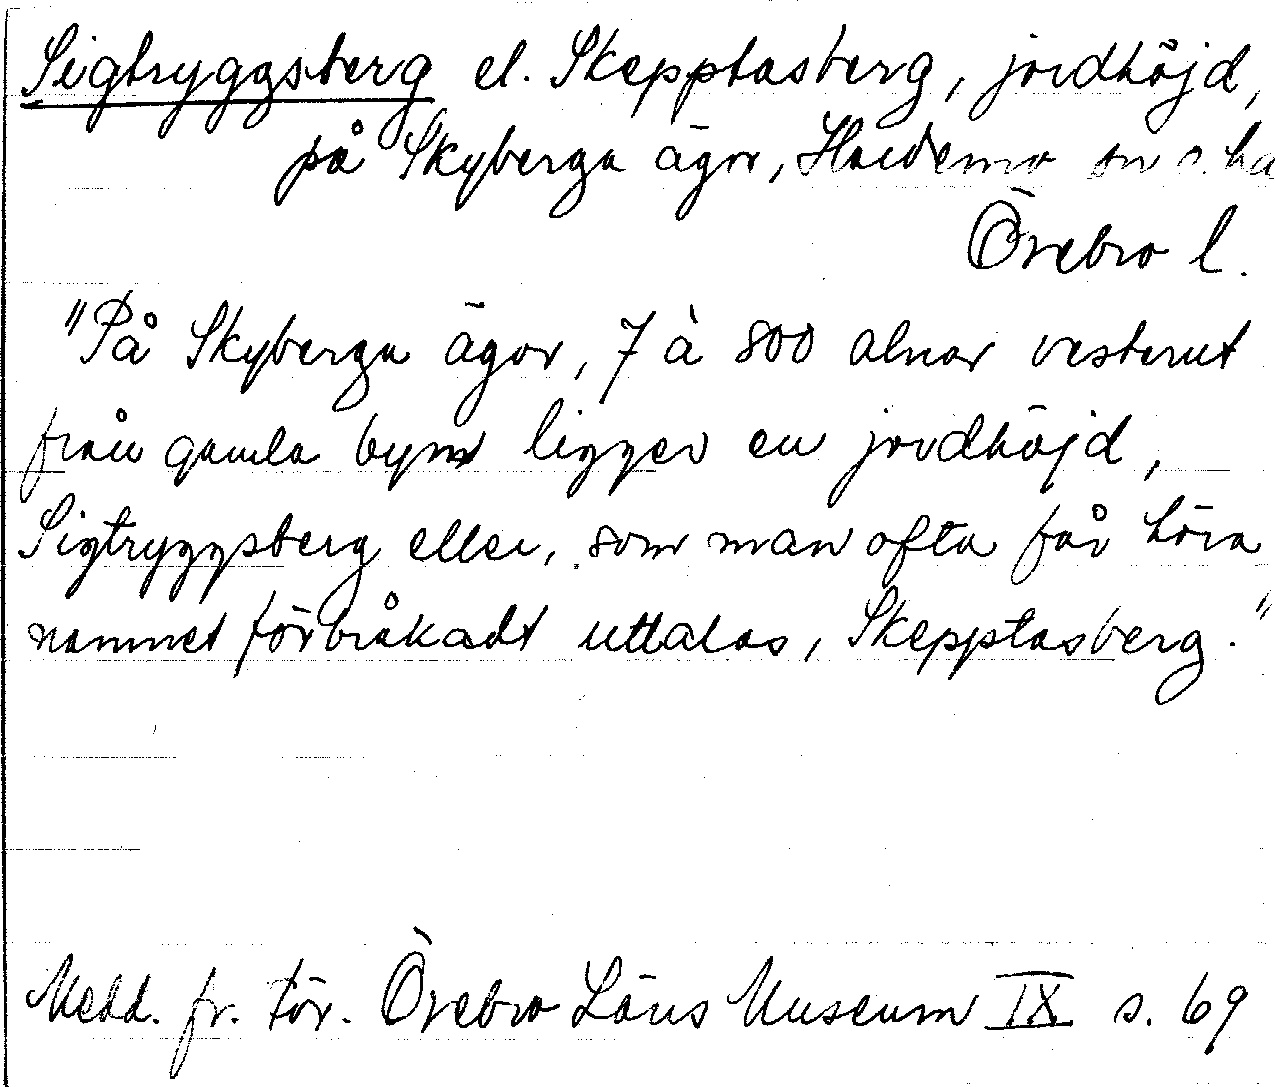 Sigtryggsberg el. Skepptasberg, jordhöjd,
på Skyberga ägor, Hardemo sn o. hd
Örebro l.
"På Skyberga ägor, 7 à 800 alnar vesterut
från gamla byn ligger en jordhöjd,
Sigtryggsberg eller, som man ofta får höra
namnet förbråkadt uttalas, Skepptasberg."
Medd. fr. för. Örebro Läns Museum IX s. 69